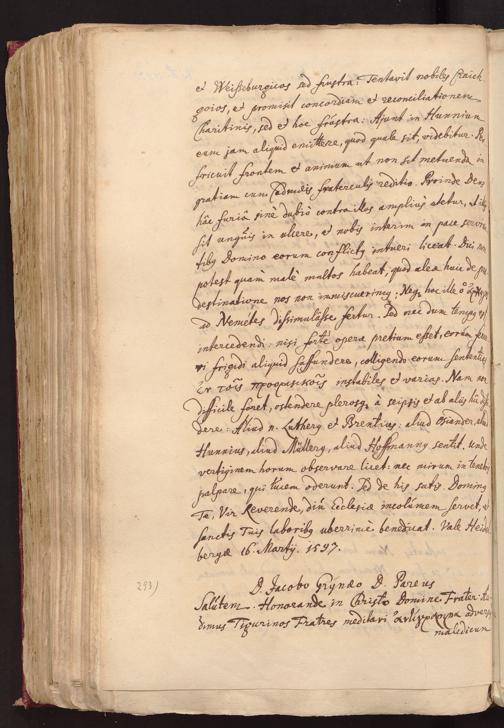 et Weissburgicos sed frustra: Tentavit nobiles Craich
goios, et promisit concordiam et reconciliationem
Charitinis, sed et hoc frustra: Ajunt in Hunnium
eum jam aliquid emittere, quod quale sit, videbitur. Per
fricuit frontem et animum ut non sit metuenda in
gratiam cum fraterculis reditio. Proinde Deus
hac furia sine dubio contra illos amplius utetur, ut
sit unguis in ulcere, et nobis interim in pace servien
tibus Domino eorum conflictus intueri liceat. Dici non
potest quam male multos habeat, quod alea huic de prae
destinatione nos non immiscuerimus. Neque hoc ille
ad Nemetes dissimulasse fertur. Sed nec dum tempus est
intercedendi, nisi forte opera pretium esset, eorum fervo
ri frigidi aliquid suffundere, colligendo eorum sententias
ἐν τοῖς instabiles et varias. Nam non
difficile foret, ostendere plerosque à seipsis et ab aliis
dere: Aliud n. Lutherus et Brentius: aliud Osiander, aliud
Hunnius, aliud Müllerus, aliud Hoffmannus sentit. unde
vertiginem horum observare licet: nec mirum in tenebris
palpare, qui lucem oderunt. Sed de his satis. Dominus
Te, Vir Reverende, diu Ecclesiae incolumem servet, et
sanctis Tuis laboribus uberrime benedicat. Vale Heidel
bergae 16. Martij. 1597.
293)
D. Jacobo Grynaeo D. Pareus
Salutem. Honorande in Christo Domine Frater. Au
dimus Tigurinos Fratres meditari adversus
maledicum